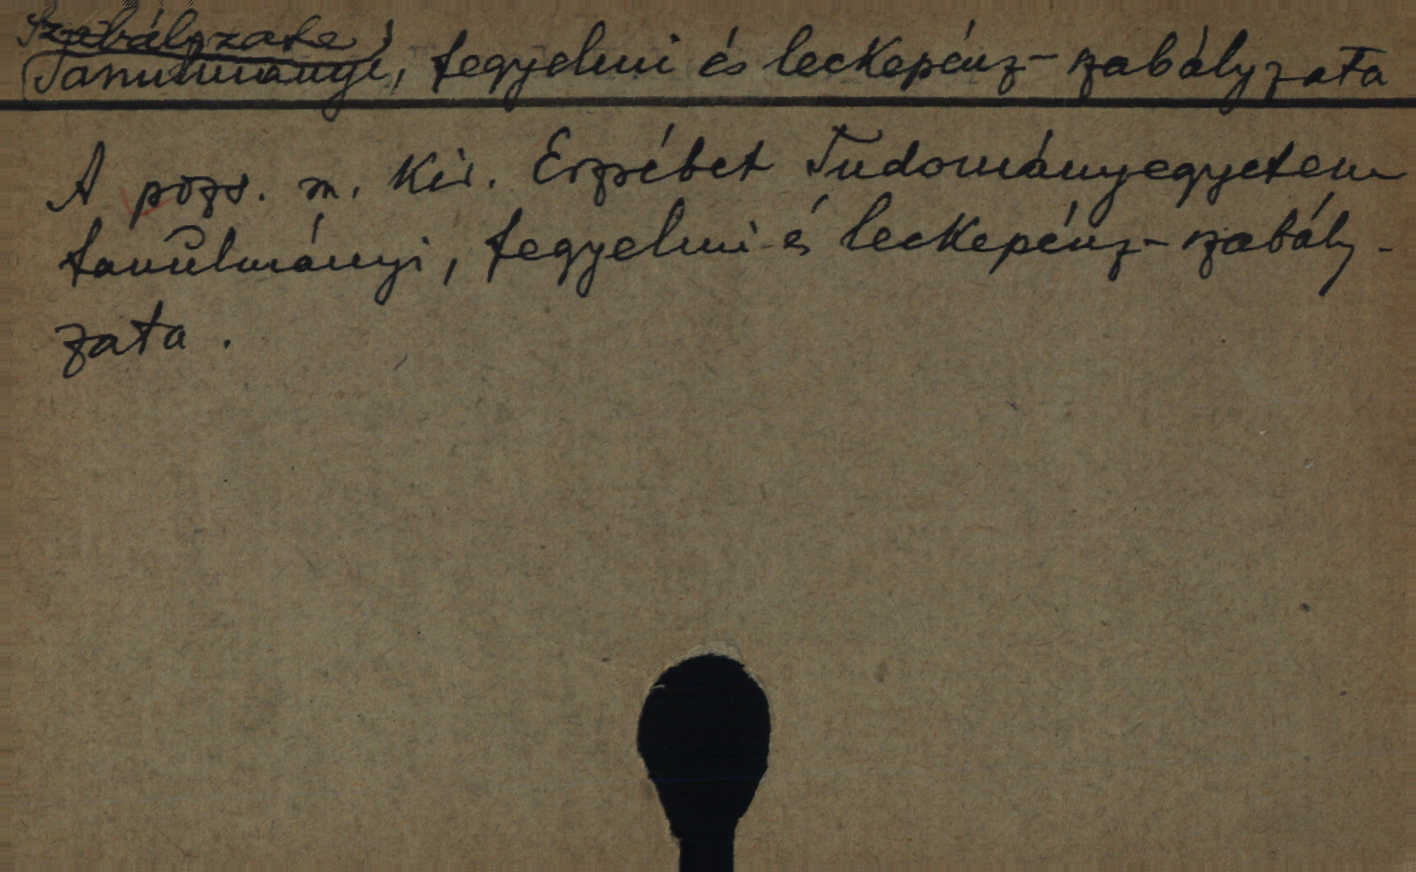 Szabályzata
Tanulmányi, fegyelmi és leckepénz-szabályzata
A pozs. m. kir. Erzsébet Tudományegyetem
tanulmányi, fegyelmi és leckepénz-szabály-
zata.